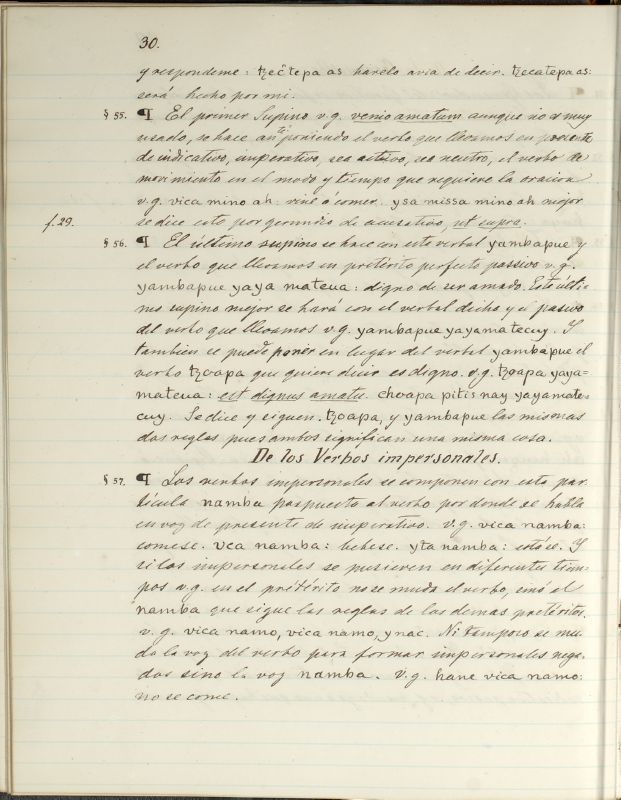 30.
y respondeme: tʒec̃tepa as harelo avia de decir. tʒecatepa as:
será hecho por mi.
§ 55. ¶ El primer Supino v.g. venio amatum aunque no es muy
usado, se hace anteponiendo el verbo que llevamos en presente
de indicativo, imperativo, sea activo, sea neutro, el verbo de
movimiento en el modo y tiempo que requiere la oracion
v.g. vica mino ah: vine á comer. ysa missa mino ah mejor
f.29. se dice esto por gerundio de acusativo, ut supra.
§ 56. ¶ El último supino se hace con este verbal yambapue y
el verbo que llevamos en pretérito perfecto passivo v.g.
yambapue yaya mateua: digno de ser amado. Este ulti-
mo supino mejor se hará con el verbal dicho y el pasivo
del verbo que llevamos v.g. yambapue yayamatecuy. Y
tambien se puede poner en lugar del verbal yambapue el
verbo tʒoapa que quiere decir es digno. v.g. tʒoapa yaya=
mateua: est dignus amatu. choapa pitis nay yayamate=
cuy. Se dice y siguen. tʒoapa, y yambapue las mismas
dos reglas pues ambos significan una misma cosa.
De los Verbos impersonales.
§ 57. ¶ Los verbos impersonales se componen con esta par-
tícula namba pospuesta al verbo por donde se habla
en voz de presente de imperativo. v.g. vica namba:
comese. vca namba: bebese. yta namba: estáse. Y
si los impersonales se pusieren en diferentes tiem-
pos v.g. en el pretérito no se muda el verbo, sinó el
namba que sigue las reglas de los demas pretéritos.
v.g. vica namo, vica namo, ynac. Ni tampoco se mu-
da la voz del verbo para formar impersonales nega-
dos sino la voz namba. v.g. hane vica namo:
no se come.